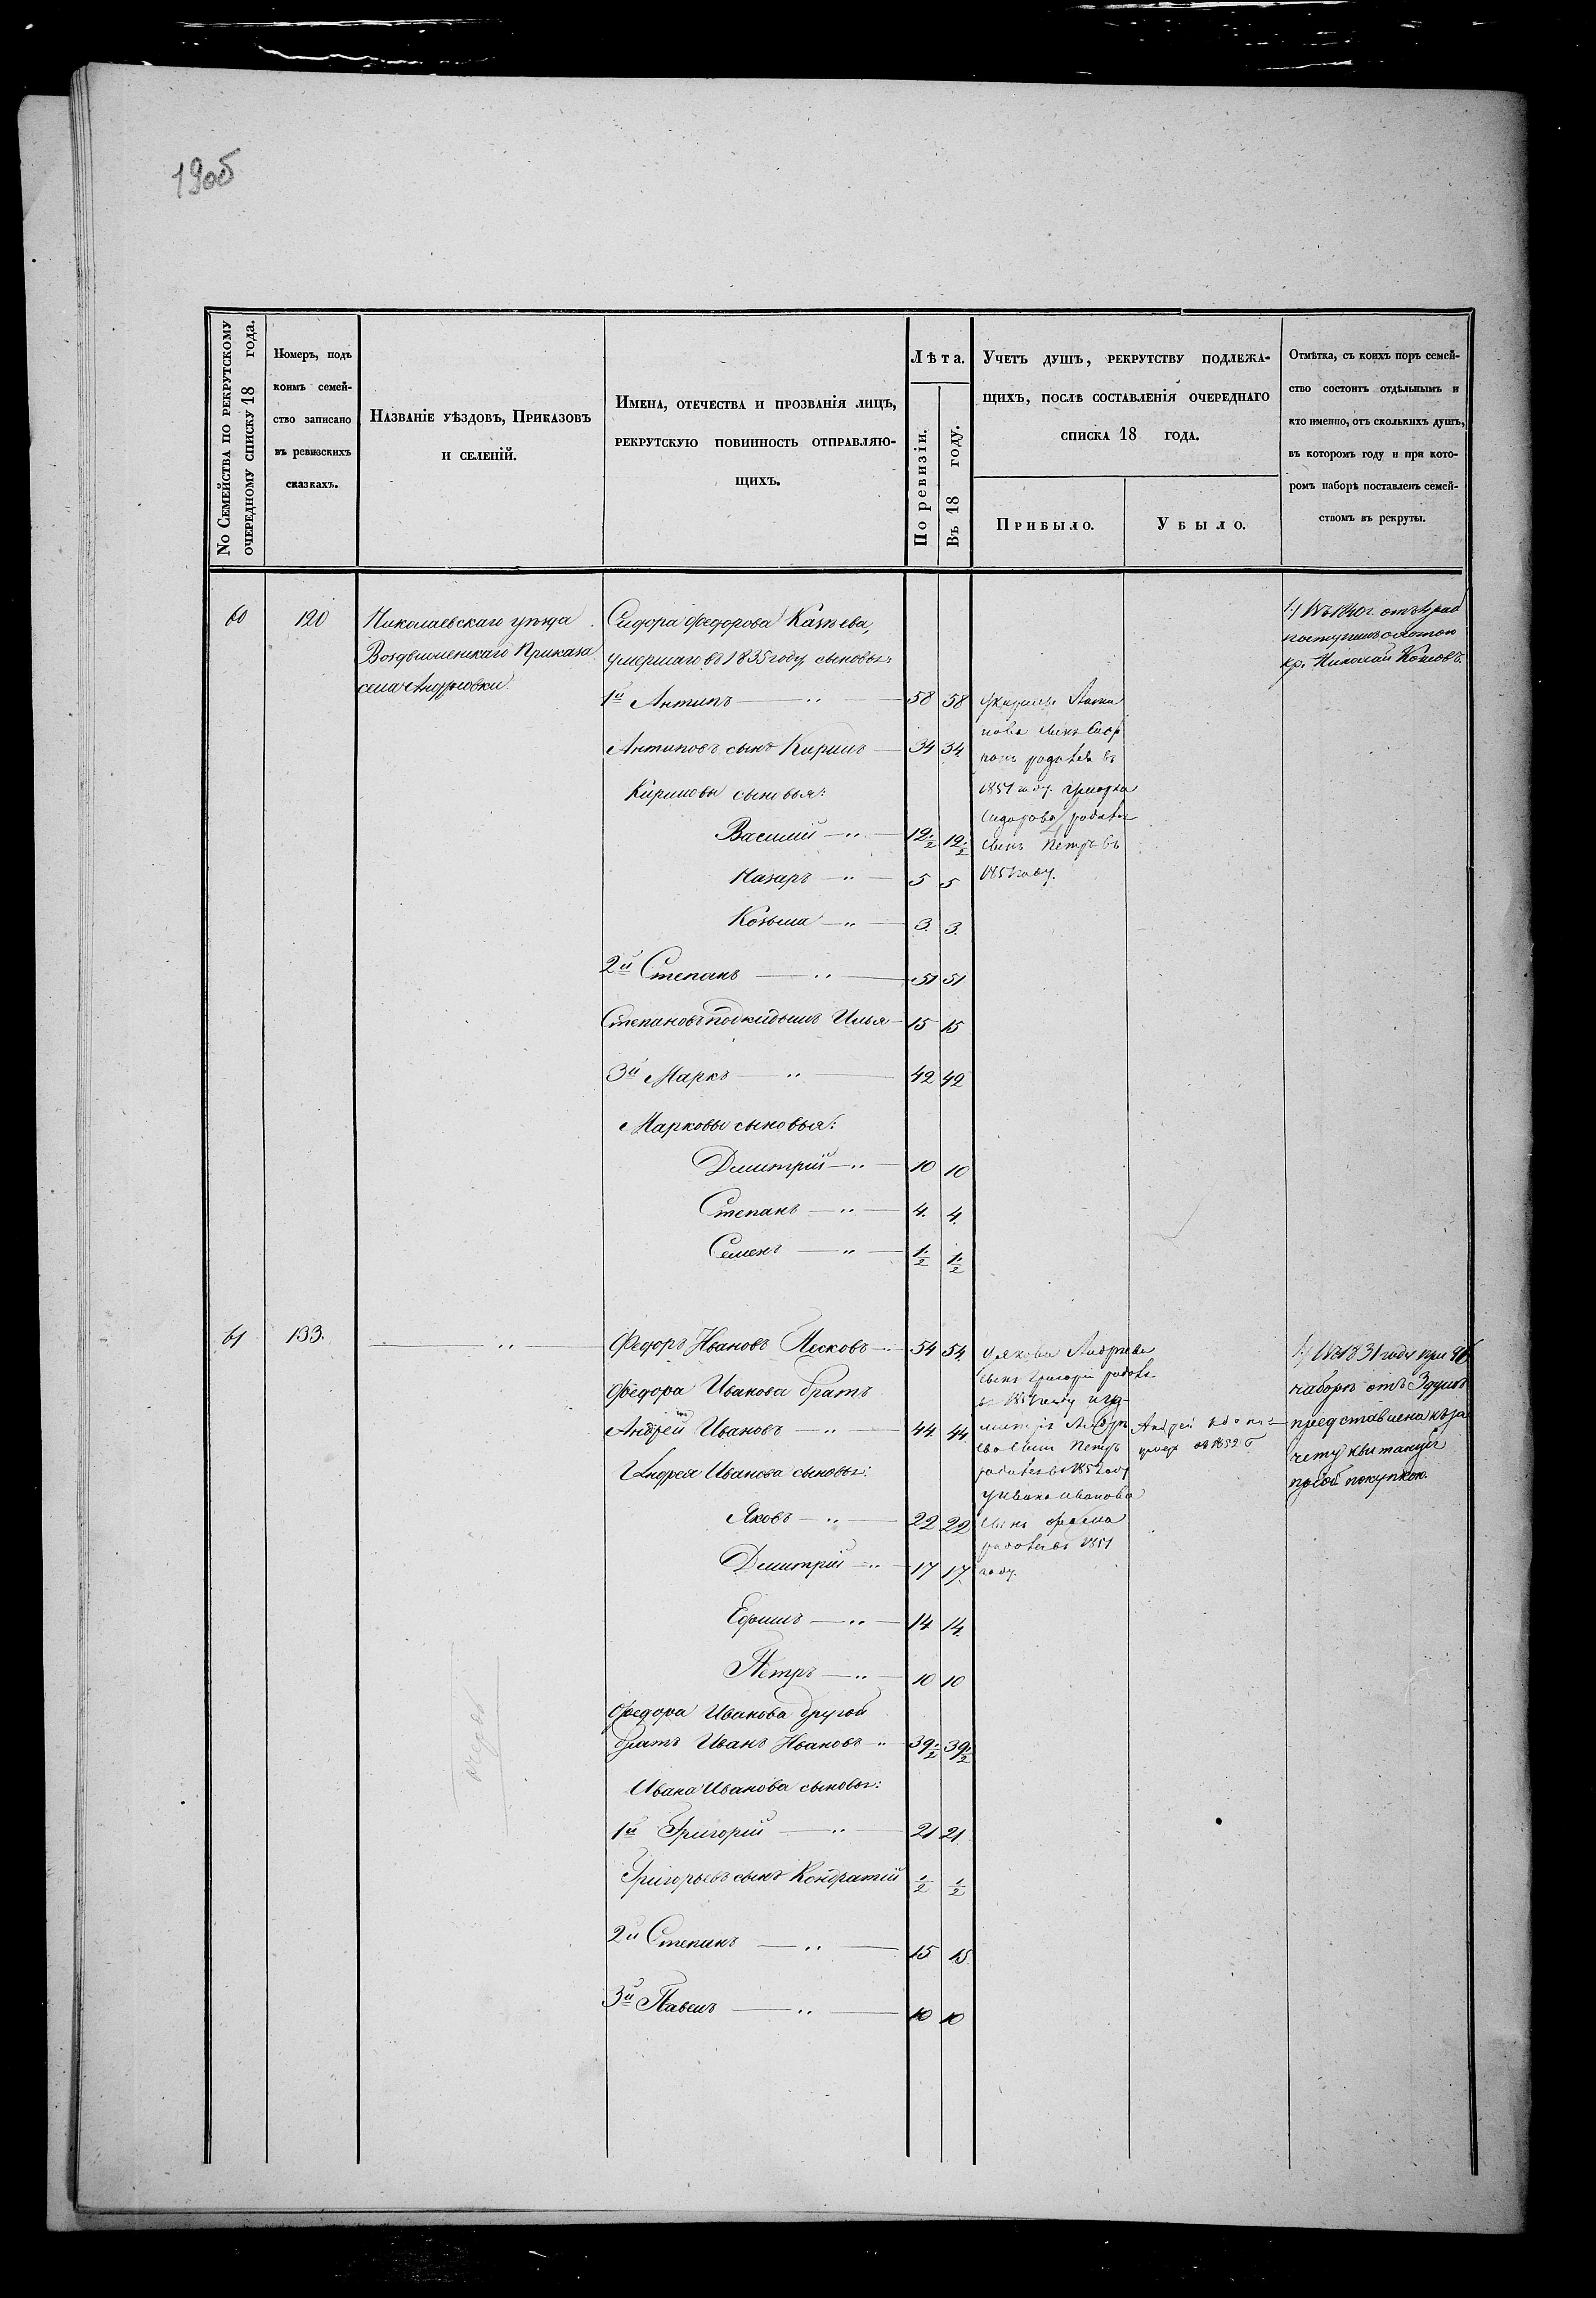 190об
No Семейства по рекрутскому
очередному списку 18 года.
Номеръ, подъ
коимъ семей-
ство записано
въ ревизскихъ
сказкахъ.
Названіе уѣздовъ, Приказовъ
и селеній.
Имена, отечества и прозванія лицъ,
рекрутскую повинность отправляю-
щихъ.
Лѣта.
По ревизіи.
Въ 18 году.
Учетъ душъ, рекрутству подлежа-
щихъ, послѣ составленія очереднаго
списка 18 года.
Прибыло.
Убыло.
Отмѣтка, съ коихъ поръ семей-
ство состоитъ отдѣльнымъ и
кто именно, отъ сколькихъ душъ,
въ которомъ году и при кото-
ромъ наборѣ поставленъ семей-
ствомъ въ рекруты.
60
120
Николаевскаго уѣзда
Воздвиженскаго Приказа
села Андреевки.
Сидора Федорова
умершаго въ 1835 году сыновья
1й Антипъ 58 58
Антиповъ сынъ Кирилъ 34 34
Кириловы сыновья:
Василий 12 1/2 12 1/2
Назаръ 5 5
Козьма 3. 3.
2й Степанъ 51 51
Степановъ подкидышъ Илья 15 15
3й Марко 42 42
Марковы сыновья:
Дмитрий 10 10
Степанъ 4. 4.
Семенъ 1/2 1/2
Антипа
нова сынъ
родился въ
1851 году. у Марка
Сидорова родился
сынъ Петръ въ
185 году.
1) Въ 1840 г. отъ
поступилъ охотою
кр. Николай
61
133.
Федоръ Ивановъ Песковъ 54 54.
Федора Иванова братъ
Андрей Ивановъ 44. 44.
Андрея Иванова сыновья:
Яковъ 22 22
Дмитрий 17 17.
Ефимъ 14 14.
Петръ 10 10
Федора Иванова другой
братъ Иванъ Ивановъ 39 1/2 39 1/2
Ивана Иванова сыновья:
1й Григорий 21 21
Григорьевъ сынъ Кондратий 1/2 1/2
2й Степанъ 15 15.
3й Павелъ 10 10
у Якова Андреева
сынъ Григорий родился
въ 1851 году и у Д-
митрия Андре
ева сынъ Петръ
родился въ 1852 году
у Ивана Иванова
сынъ
родился въ 1851
году.
Андрей
умеръ въ 1852 г
1) Въ 1831 году при 96
наборѣ отъ 3 душъ
представлена къ за
чету квитанция
покупкою.